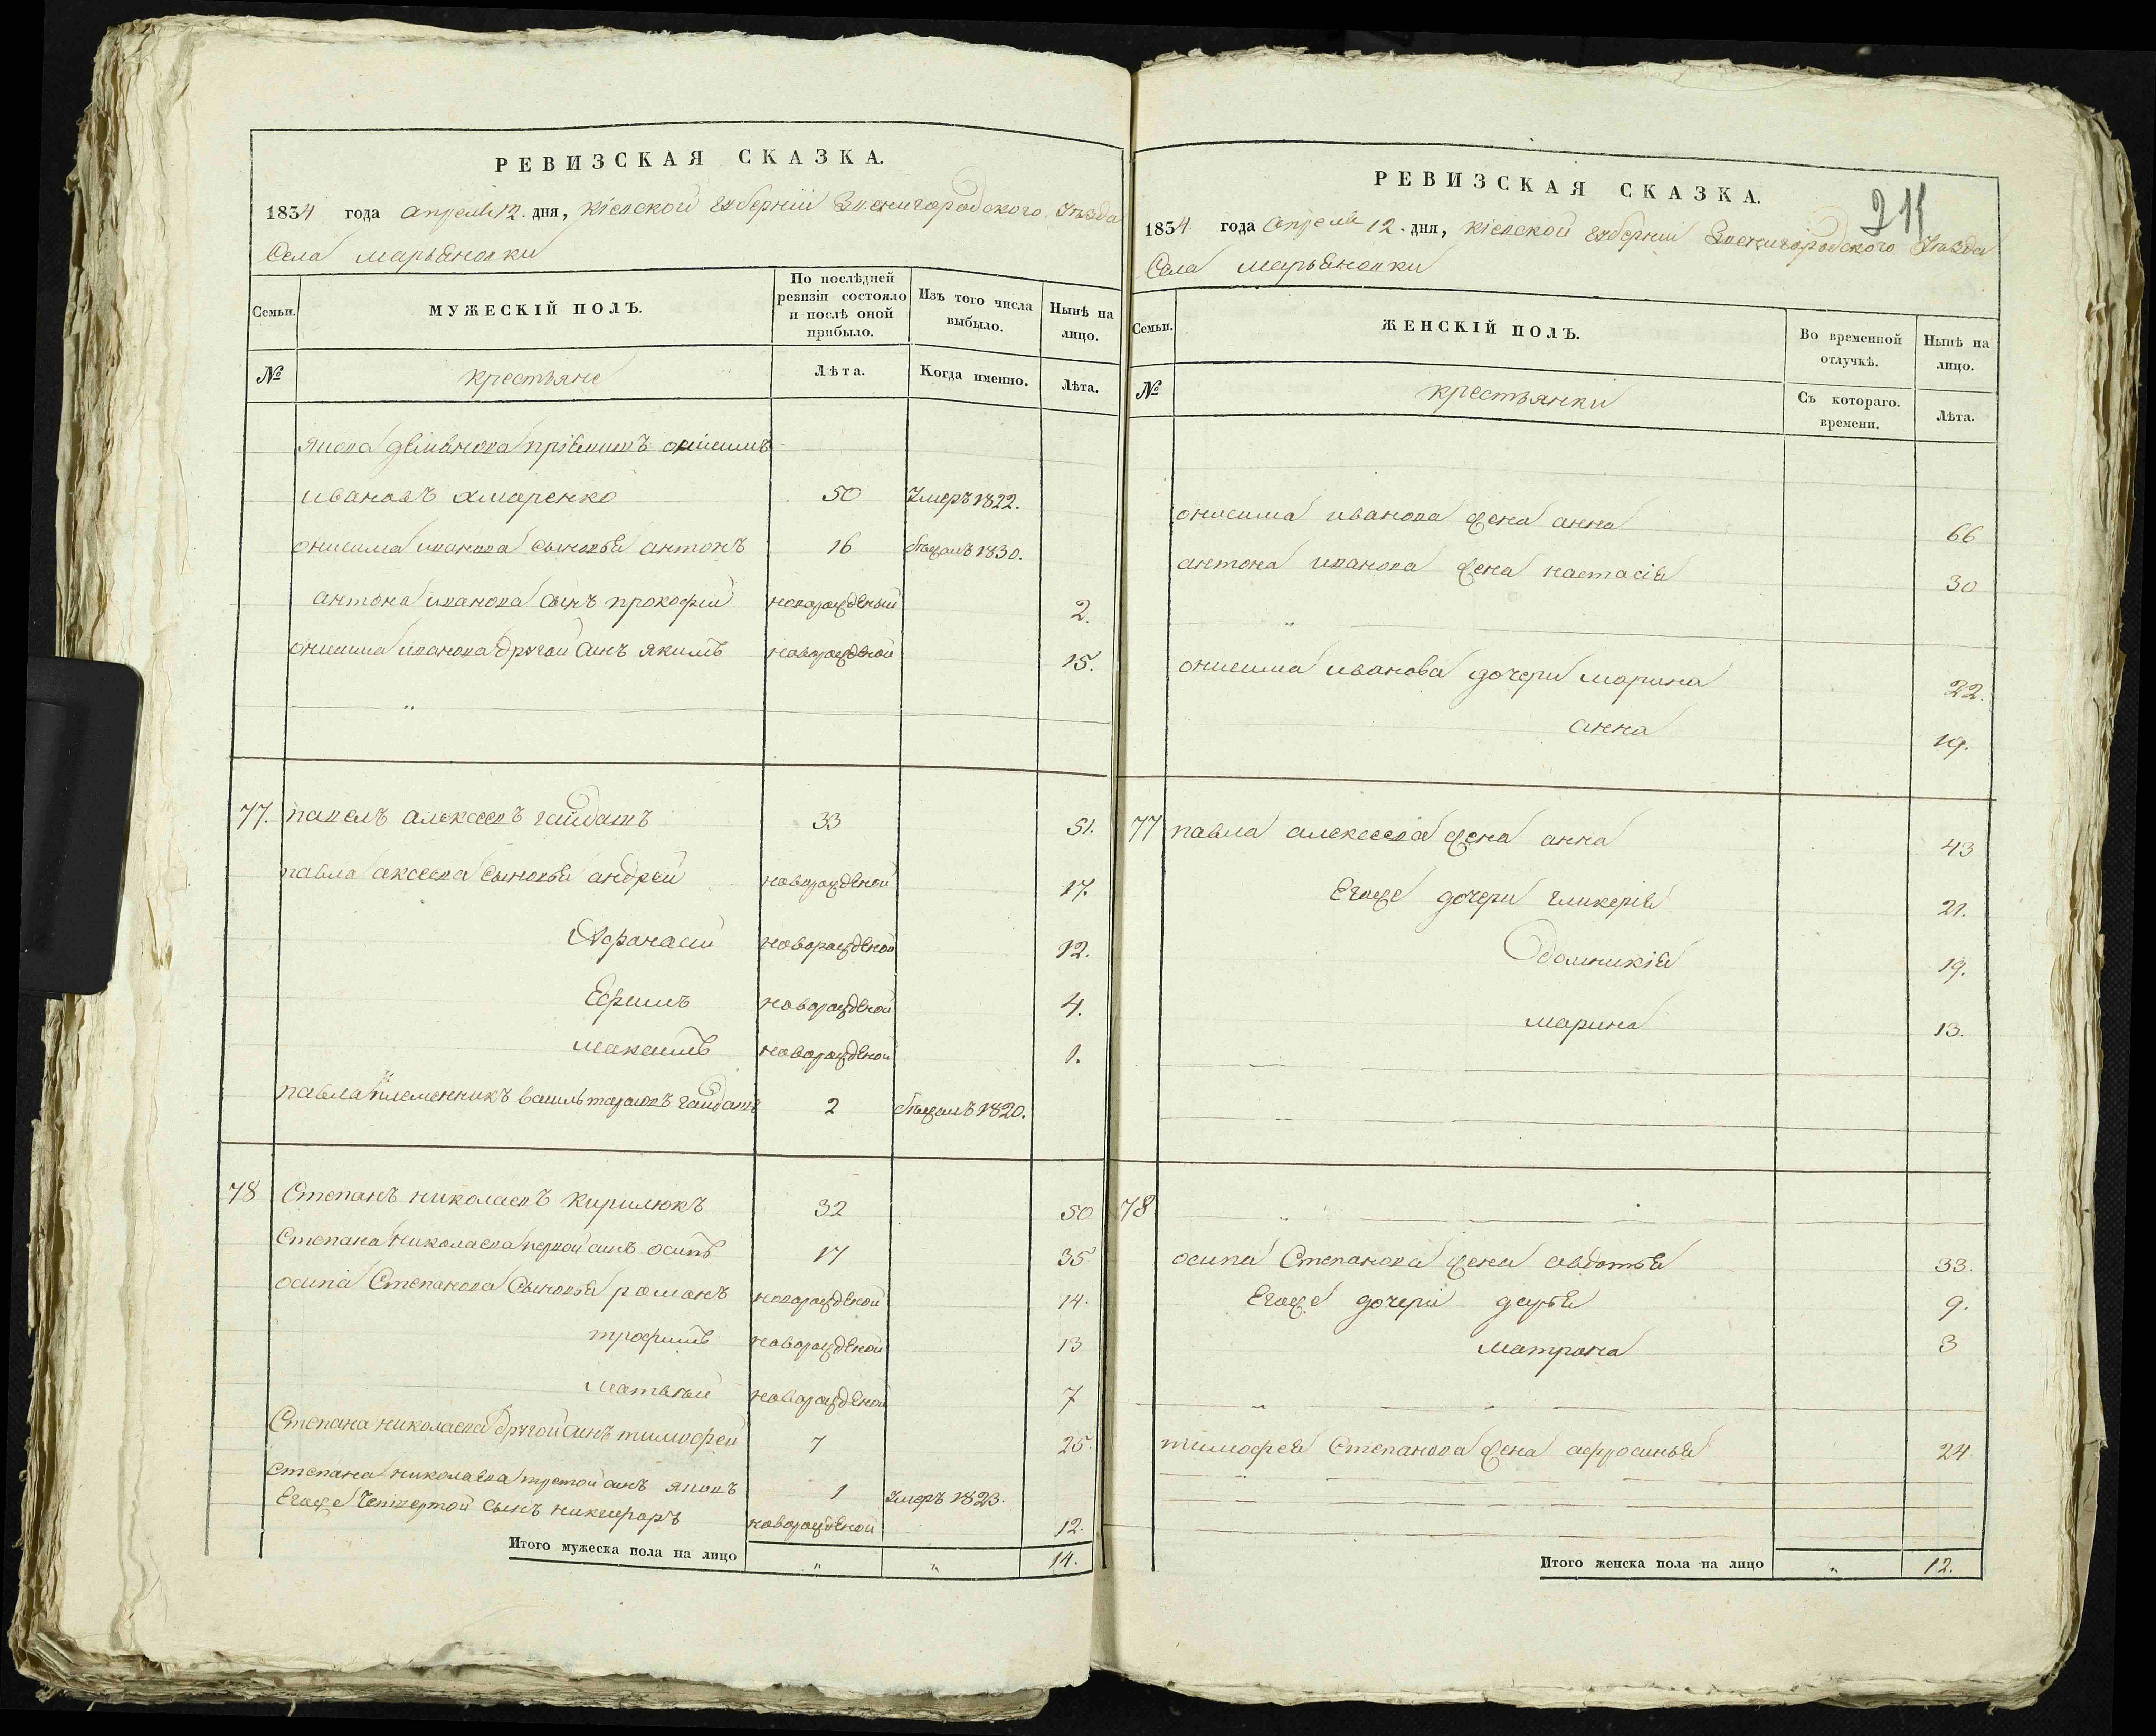 РЕВИЗСКАЯ СКАЗКА.
1834 года апреля 12. дня, кіевской губерніи Звенигородского уѣзда
Села Марьяновки
Семьи. МУЖЕСКІЙ ПОЛЪ. По послѣдней ревизіи состояло и послѣ оной прибыло. Изъ того числа выбыло. Нынѣ на лицо.
№ крестьяне Лѣта. Когда именно. Лѣта.
пріемышъ онисимъ
ивановъ хмаренко 50 умеръ 1822.
онисима иванова сыновья антонъ 16 бѣжалъ 1830.
антона иванова сынъ прокофий новорожденый 2.
онисима иванова другой синъ якимъ новорожденой 15.
"
77. павелъ алексеевъ гайдашъ 33 51.
павла аксеева сыновья андрей новорожденой 17.
Афанасий новорожденой 12.
Ефимъ новорожденой 4.
максимъ новорожденой 1.
павла племенникъ василь тарасовъ гайдашъ 2 бѣжалъ 1820.
78 Степанъ николаевъ кирилюкъ 32 50
Степана николаева первой синъ осипъ 17 35.
осипа Степанова Сыновья романъ новорожденой 14.
трофимъ новорожденой 13
матвѣй новорожденой 7
Степана николаева другой синъ тимофей 7 25.
степана николаева третой синъ яковъ 1 умеръ 1823.
Егоже Четвертой сынъ никифоръ новорожденой 12.
Итого мужеска пола на лицо " " 14.
211
РЕВИЗСКАЯ СКАЗКА.
1834 года апреля 12. дня, кіевской губерніи Звенигородского уѣзда
Села марьяновки
Семьи. ЖЕНСКІЙ ПОЛЪ. Во временной отлучкѣ. Нынѣ на лицо.
№ крестьянки Съ котораго времени. Лѣта.
онисима иванова жена анна 66
антона иванова жена настасія 30
"
онисима иванова дочери марина 22.
анна 19.
77 павла алексеева жена анна 43
Егоже дочери гликерія 21.
домникія 19.
марина 13.
78 "
осипа Степанова жена авдотья 33.
Егоже дочери дарья 9.
матрона 3
" "
тимофея Степанова жена афросинья 24
"
"
Итого женска пола на лицо " 12.